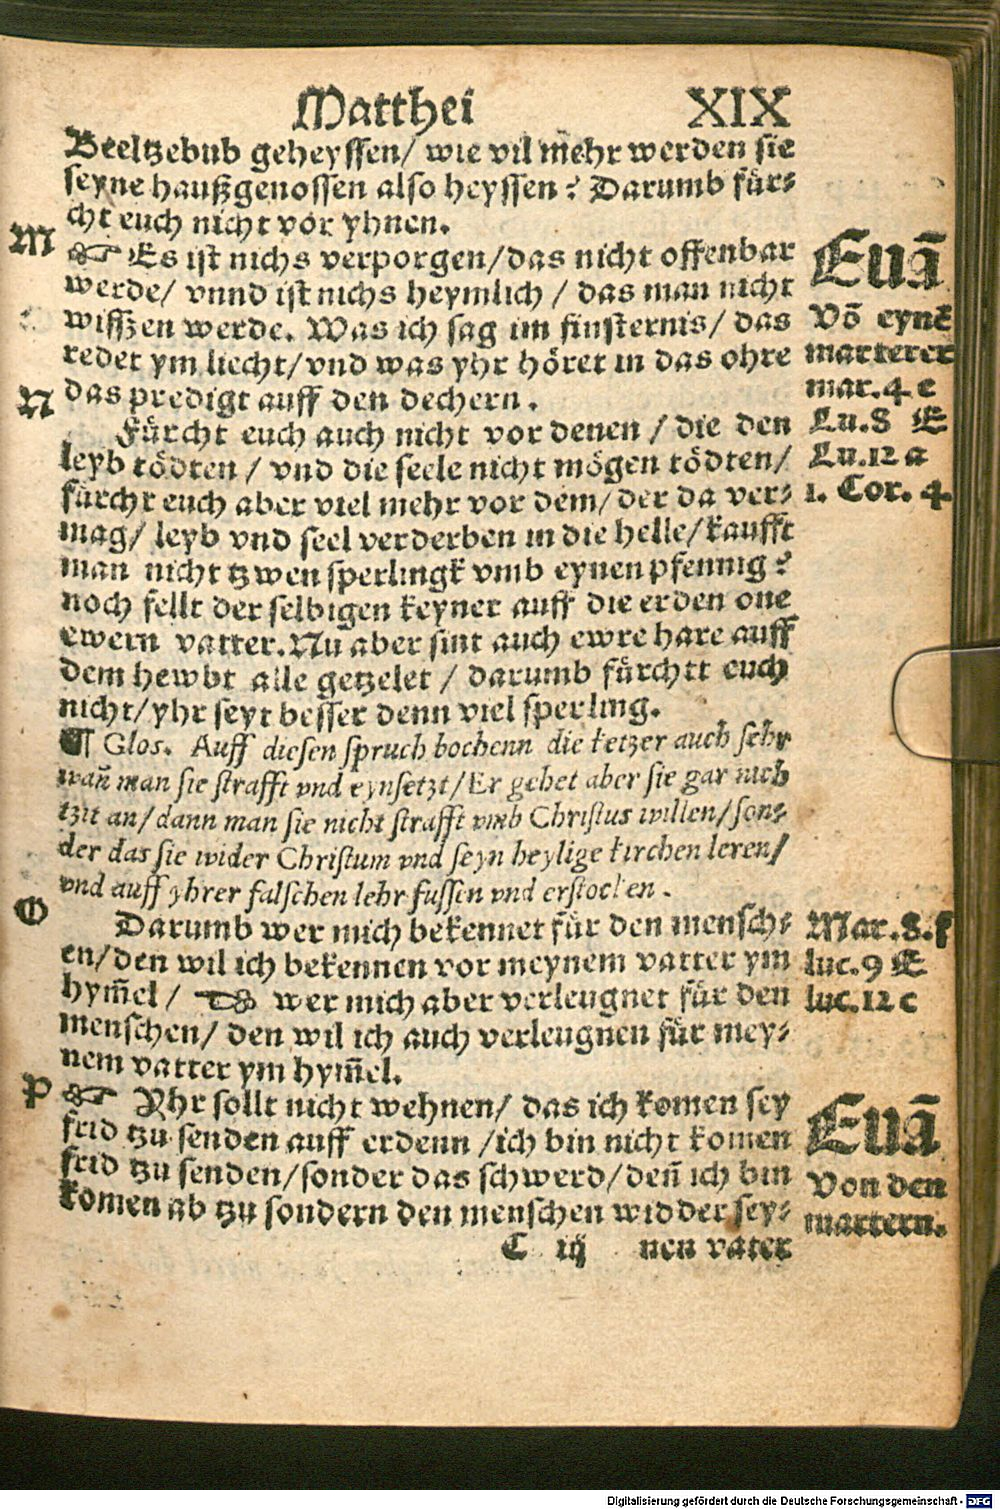 Matthei XIX
Beeltzebub geheyssen/ wie vil mehr werden sie
seyne haußgenossen also heyssen? Darumb für⸗
cht euch nicht vor yhnen.
M
☞ Es ist nichs verporgen/das nicht offenbar
werde/ vnnd ist nichs heymlich / das man nicht
wisszen werde. Was ich sag im finsternis/ das
redet ym liecht/vnd was yhr höret in das ohre
das predigt auff den dechern.
Euā
Võ eynē
marterer
mar.4 c
Lu.8 E
Lu.12 a
1. Cor. 4.
N
Fürcht euch auch nicht vor denen / die den
leyb tödten / vnd die seele nicht mögen tödten/
fürcht euch aber viel mehr vor dem/ der da ver⸗
mag/ leyb vnd seel verderben in die helle/kaufft
man nicht tzwen sperlingk vmb eynen pfennig?
noch fellt der selbigen keyner auff die erden one
ewern vatter. Nu aber sint auch ewre hare auff
dem hewbt alle getzelet / darumb fürchtt euch
nicht/yhr seyt besser denn viel sperling.
¶ Glos. Auff diesen spruch bochenn die ketzer auch sehr
wañ man sie strafft vnd eynsetzt/Er gehet aber sie gar nich
tzit an/dann man sie nicht strafft vmb Christus willen/son⸗
der das sie wider Christum vnd seyn heylige kirchen leren/
vnd auff yhrer falschen lehr fussen vnd erstocken.
O
Darumb wer mich bekennet für den mensch⸗
en/den wil ich bekennen vor meynem vatter ym
hym̄el / ☜ wer mich aber verleugnet für den
menschen/ den wil ich auch verleugnen für mey⸗
nem vatter ym hym̄el.
Mar.8.f
luc.9 E
luc.12 c
P
☞ Yhr sollt nicht wehnen/ das ich komen sey
frid tzu senden auff erdenn /ich bin nicht komen
frid tzu senden/sonder das schwerd/deñ ich bin
komen ab tzu sondern den menschen widder sey⸗
Euā
Von den
martern.
C iij nen vater
Digitalisierung gefördert durch die Deutsche Forschungsgemeinschaft - DFG